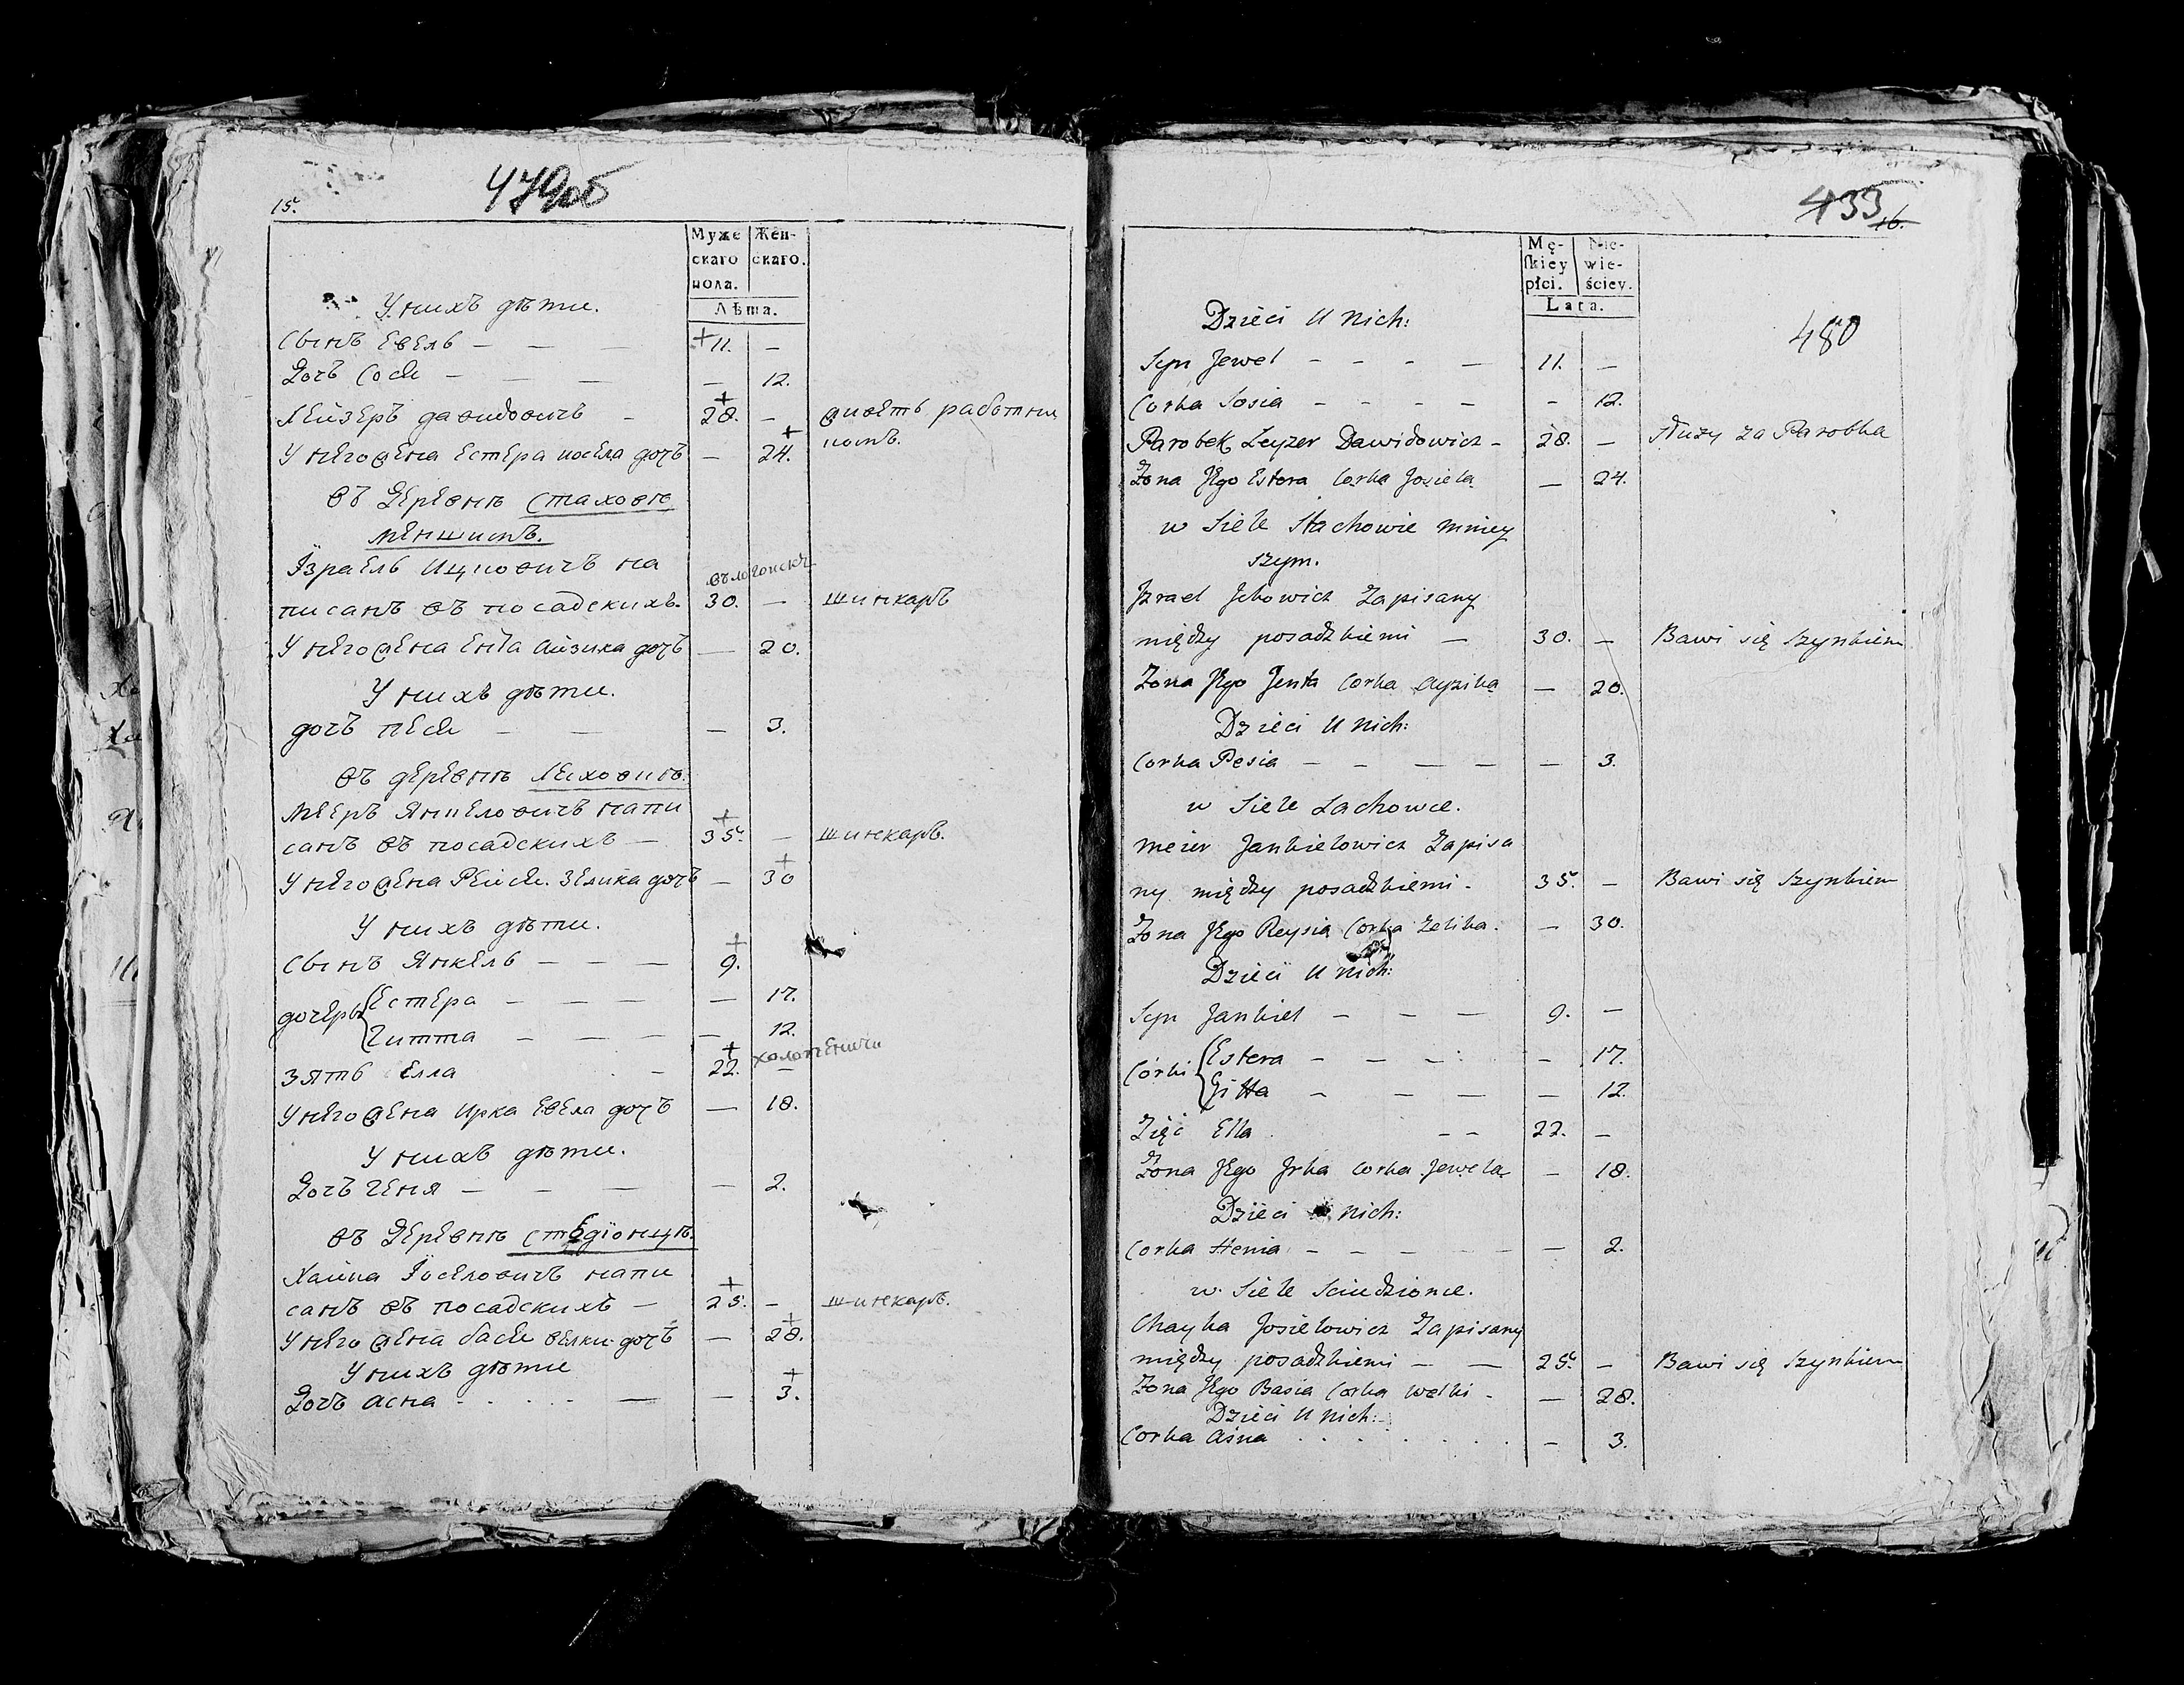 15.
479об
Муже Жен-
скаго скаго.
пола.
Лѣта.
У нихъ дѣти.
Сынъ Евель — — — 11. —
Дочъ Сося — — — — 12.
Лейзеръ Давидовичъ — 28. — живетъ работни
комъ.
У него жена Естера иосела дочъ — 24.
въ Деревнѣ Стаховѣ
меншимъ.
Їзраель Ицковичъ на
писанъ въ посадскихъ. 30. — шинкаръ
У него жена Ента айзика дочъ — 20.
У нихъ дѣти.
дочъ песя — — — 3.
въ деревнѣ Ляховитѣ.
Мееръ Янкеловичъ напи
санъ въ посадскихъ — 35. — шинкаръ.
У него жена Рейся. Зелика дочъ — 30
У нихъ дѣти.
Сынъ Янкель — — — 9.
дочеръ Естера — — — — 17.
Гитта — — — — — 12.
холопеничи
зять Елла — 22. —
У него жена Ирка Евела дочъ — 18.
У нихъ дѣти.
Дочъ Геня — — — — 2.
въ Деревнѣ
Хайка Їоселовичъ напи
санъ въ посадскихъ — 25. — шинкаръ.
У него жена бася велки дочъ — 28.
У нихъ дѣти
Дочъ асна . . . . — — 3.
433
16.
480
Mę- Nie-
skiey wie-
płci. ściey.
Lata.
Dzieci U Nich:
Syn Jewel - - - — 11. —
Corka Sosia - - - - - 12.
Parobek Leyzer Dawidowicz - 28. — służy za Parobka
Żona Jego Estera Corka Josiela — 24.
w Siele Stachowie mniey
szym.
Izrael Ickowicz Zapisany
między posadzkiemi — 30. — Bawi się Szynkiem
Żona Jego Jenta Corka Ayzika — 20.
Dzieci U Nich:
Corka Pesia — - — — — 3.
w Siele Lachowce.
meier Jankielowicz Zapisa
ny między posadzkiemi - 35. — Bawi się Szynkiem
Żona Jego Reysia Corka Zelika. — 30.
Dzieci U Nich:
Syn Jankiel — - — 9. —
Córki Estera — - — - — 17.
Gitta - - — — 12.
Zięć Ella - - 22. —
Żona Jego Jrka corka Jewela — 18.
Dzieci nich:
Corka Henia - - - - - — 2.
w Siele Sciudzionce.
Chayka Josielowicz Zapisany
między posadzkiemi — — 25. — Bawi się Szynkiem
Żona Jego Basia Corka Welki - — 28.
Dzieci U Nich:
Corka Asna . . . . . . . - 3.